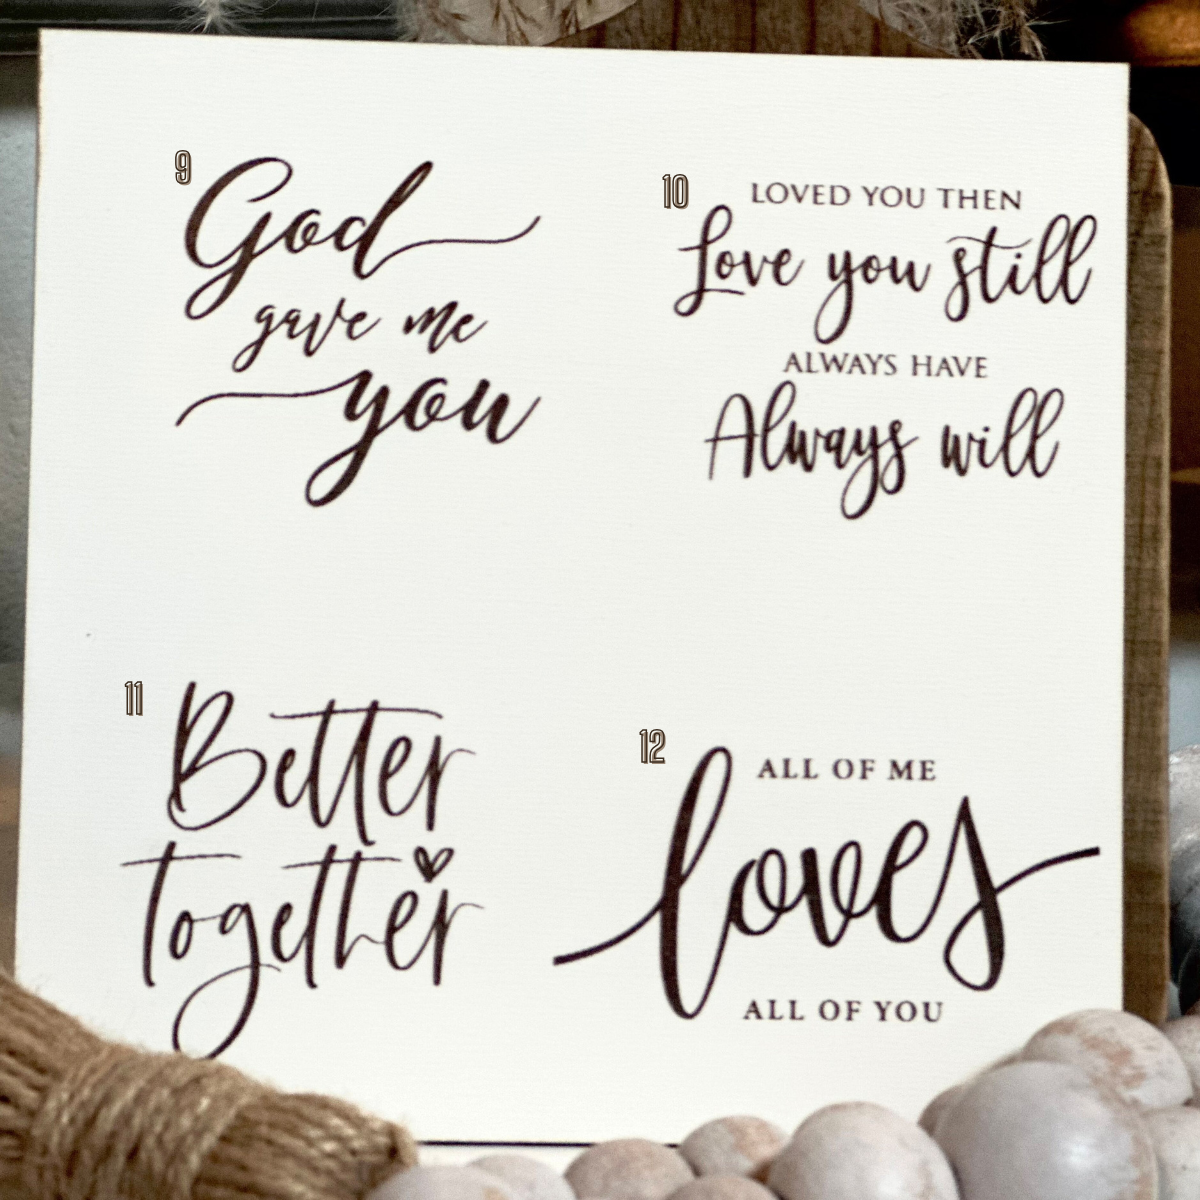 9
God
gave me
you
10
LOVED YOU THEN
Love you still
ALWAYS HAVE
Always will
11
Better
together
12
ALL OF ME
loves
ALL OF YOU